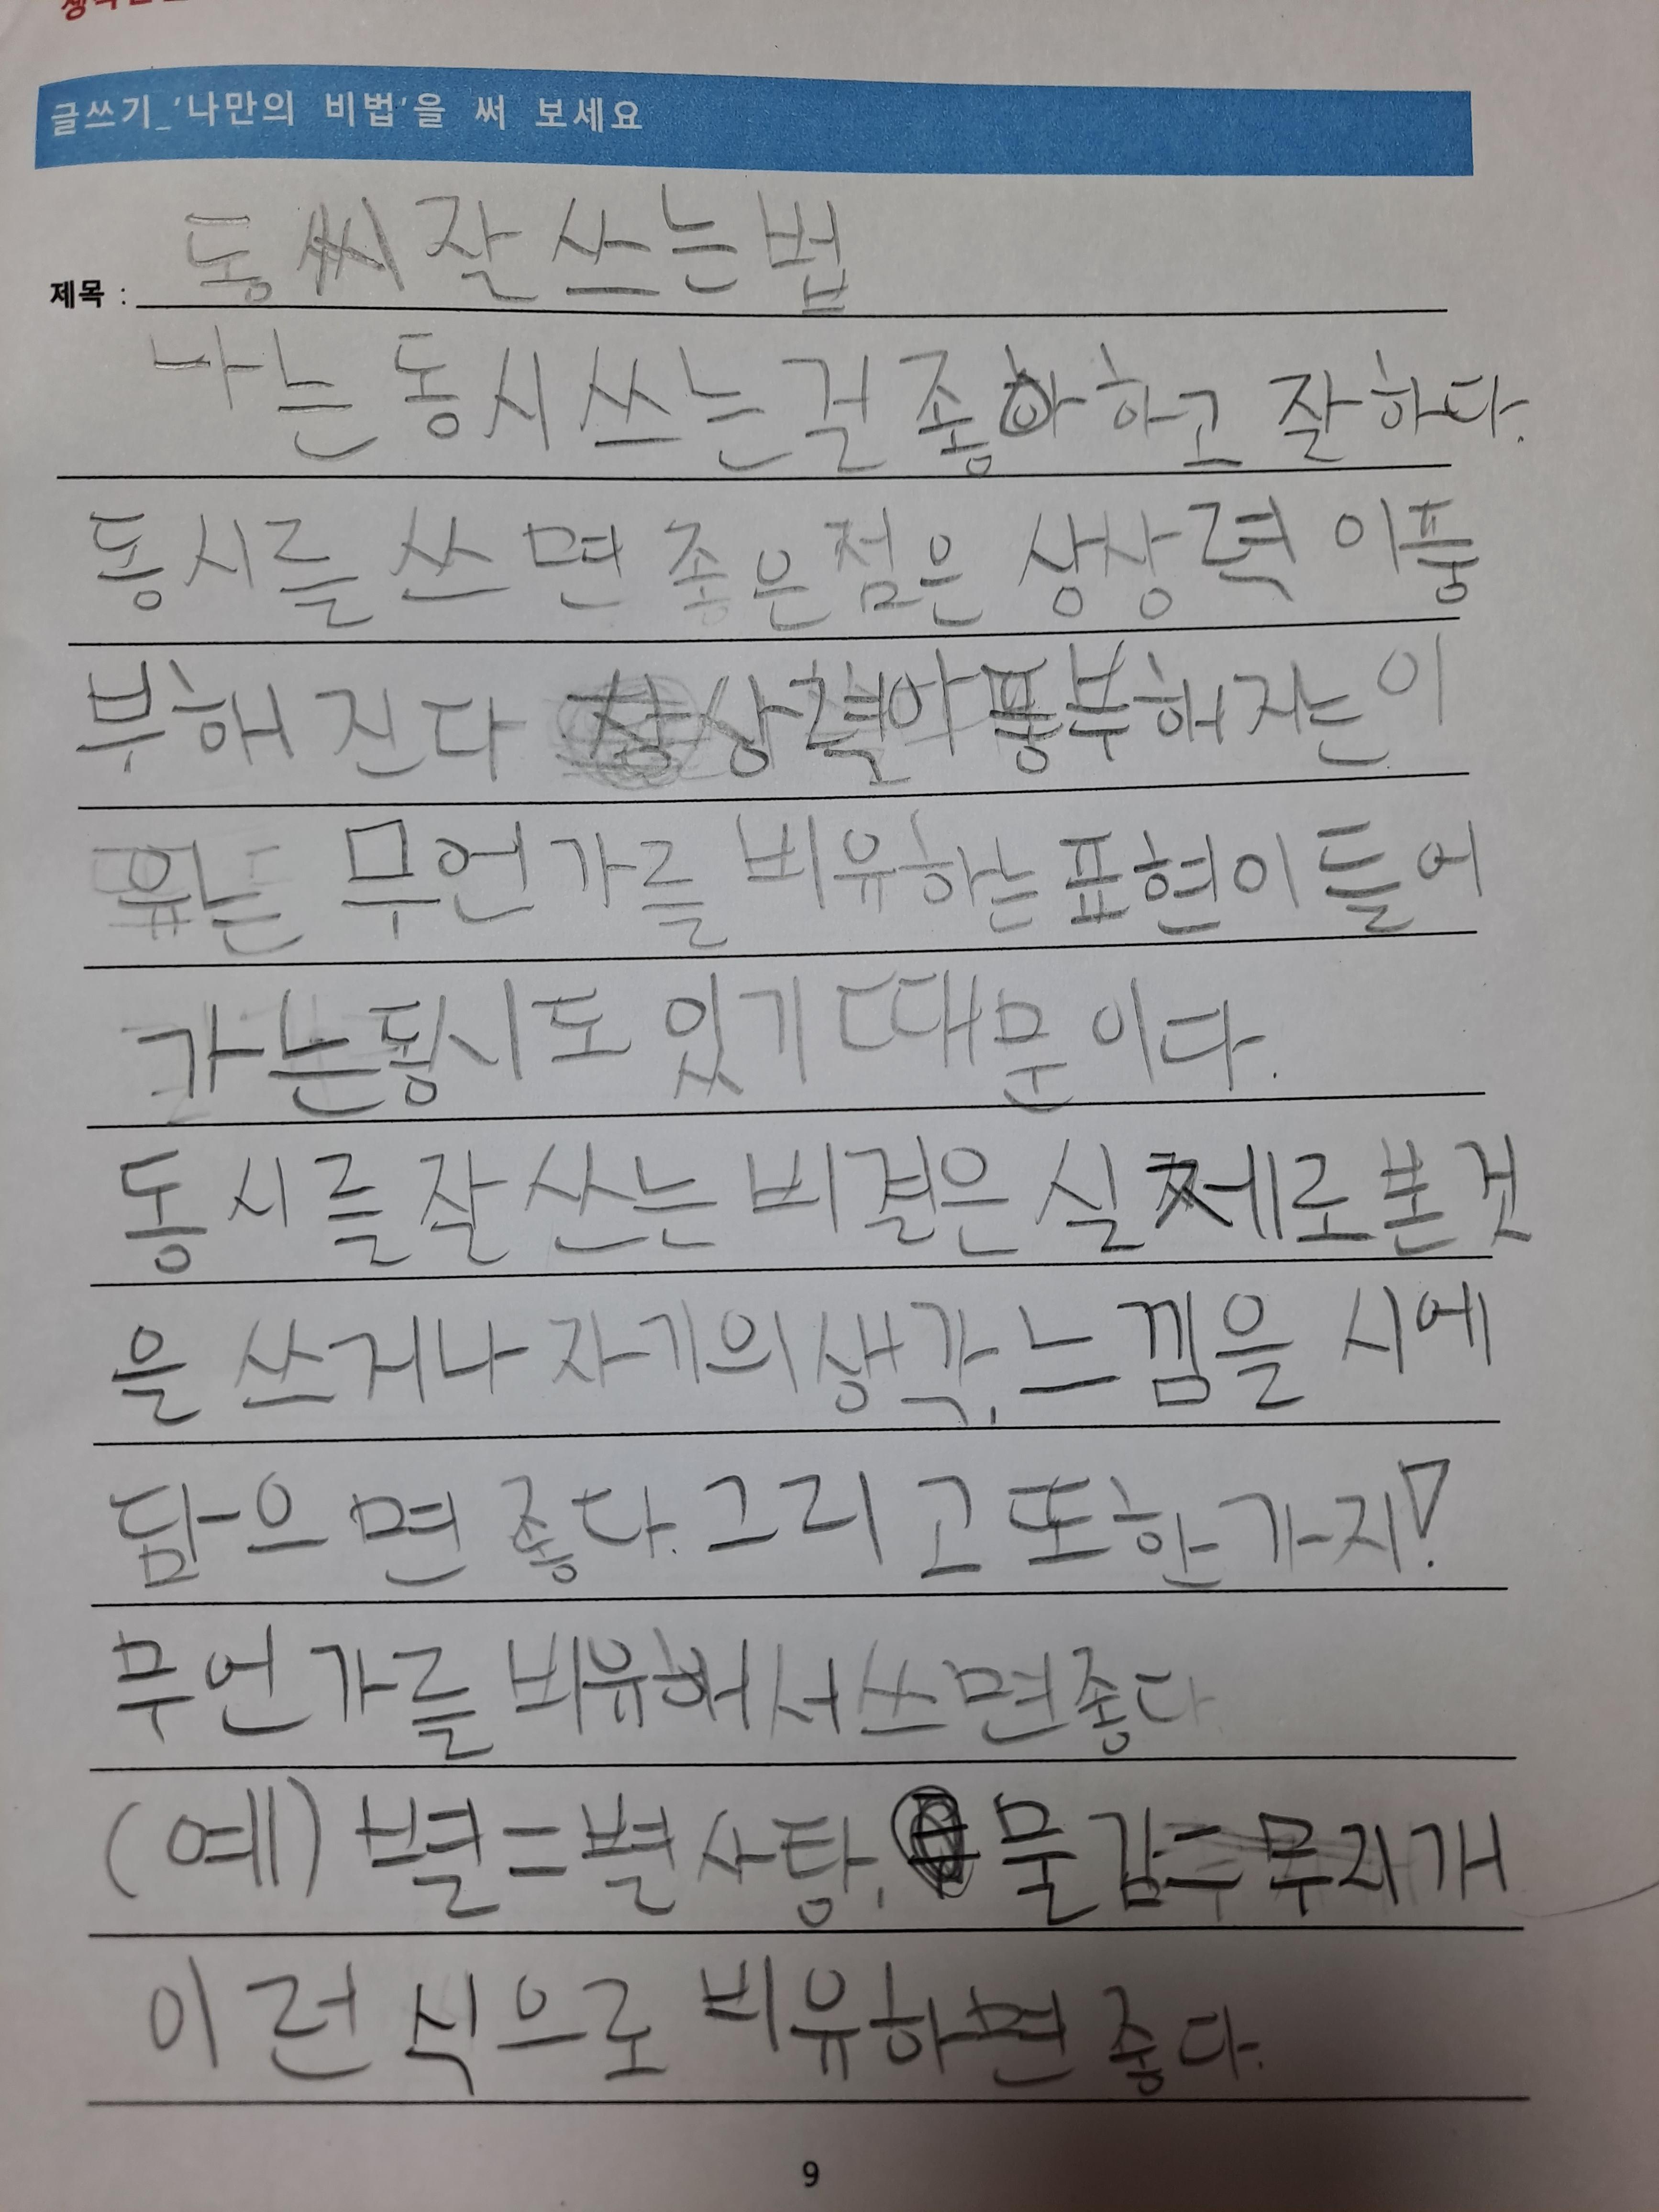 글쓰기_'나만의 비법'을 써 보세요
제목 : 동씨 잘 쓰는 법
나는 동시 쓰는 걸 좋아하고 잘하다.
동시를 쓰면 좋은 점은 상상력 이풍
부해 진다 상상력이 풍부해지는 이
유는 무언가를 비유하는 표현이 들어
가는 동시도 있기 때문이다.
동시를 잘 쓰는 비결은 실제로 본 것
을 쓰거나 자기의 생각, 느낌을 시에
담으면 좋다. 그리고 또 한 가지!
무언가를 비유해서 쓰면 좋다.
(예) 별=별사탕, 물감=무지개
이런 식으로 비유하면 좋다.
9